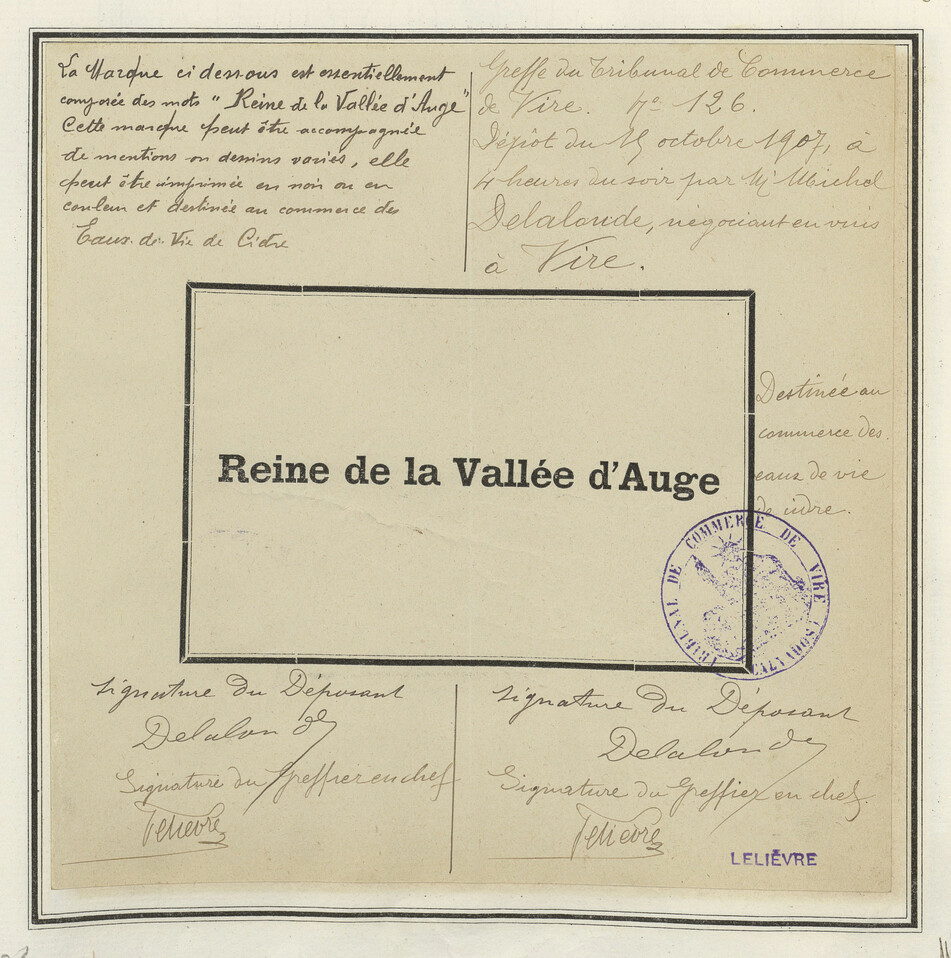 La Marque ci dessous est essentiellement
composée des mots "Reine de la Vallée d'Auge"
Cette marque peut être accompagnée
de mentions ou dessins variés, elle
peut être imprimée en noir ou en
couleur et destinée au commerce des
Eaux-de-Vie de Cidre
Greffe du Tribunal de Commerce
de Vire. No 126.
Dépôt du 15 octobre 1907, à
4 heures du soir par Mr Michel
Delalonde, négociant en vins
à Vire.
Reine de la Vallée d'Auge
Destinée au
commerce des
eaux de vie
de cidre.
TRIBUNAL DE COMMERCE DE VIRE (CALVADOS)
Signature du Déposant
Delalonde
Signature du Greffier en chef
Lelièvre
Signature du Déposant
Delalonde
Signature du Greffier en chef.
Lelièvre
LELIÈVRE